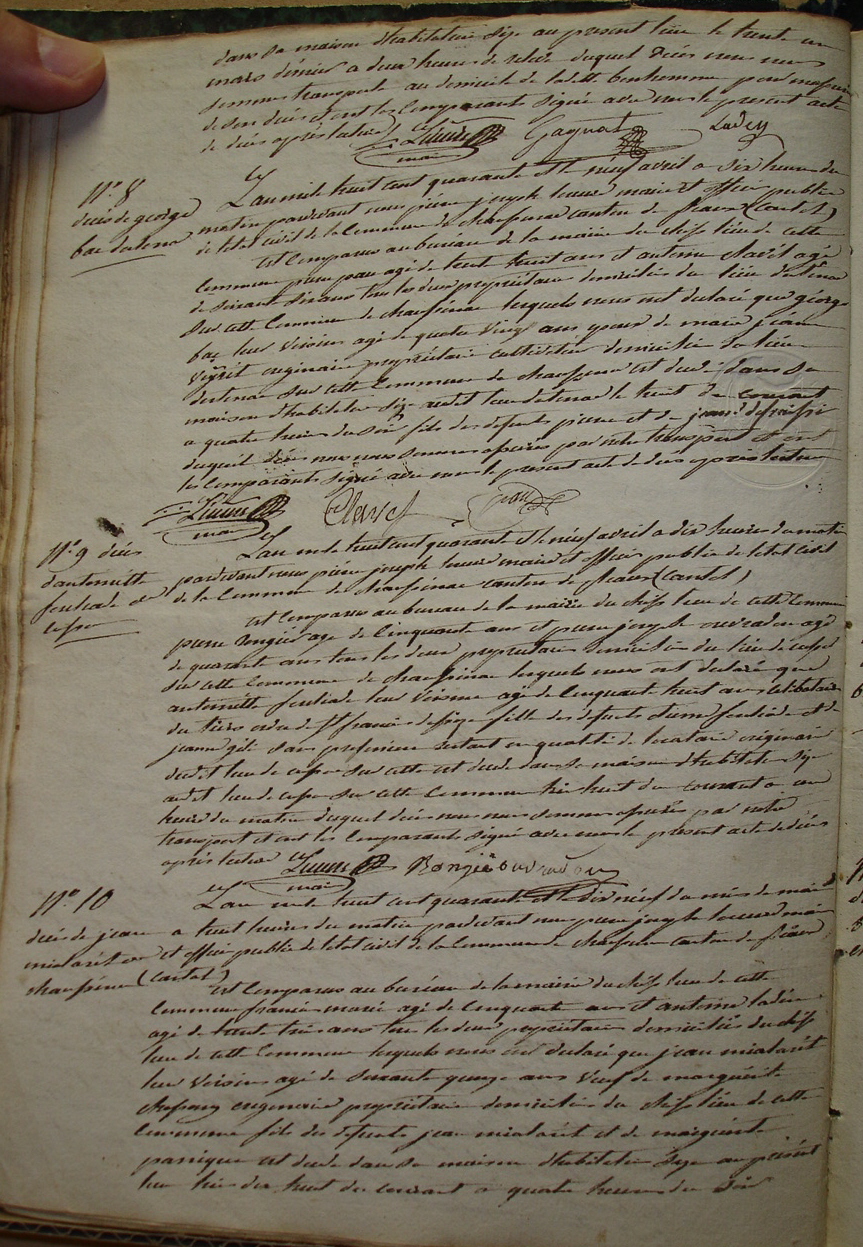 dans sa maison d'habitation size au present lieu le trente un
mars dernier a deux heures de relevé duquel décès nous nous
sommes transporté au domicile de ladite bonhomme pour
de son décès et ont les Comparants signé avec nous le present acte
de décès après lecture
maire
Gagnat
Ladey
N° 8
décès de george
bac
L'an mil huit cent quarante et le neuf avril a six heures du
matin pardevant nous pierre joseph maire et officier public
de l'etat civil de la Commune de canton de (Cantal)
Est Comparus au bureau de la mairie du chef lieu de cette
Commune pierre pau agé de trente huit ans et antoine clavel agé
de soixante six ans tous les deux propriétaires domiciliés du lieu
sur cette Commune de lesquels nous ont déclaré que george
bac leur voisin agé de quatre vingt ans époux de marie jeanne
originaire propriétaire cultivateur domicilié du lieu
sur cette Commune de est décédé dans sa
maison d'habitation size audit lieu le huit du courant
a quatre heures du soir fils des defunts pierre et de jeanne
duquel décès nous nous sommes assurés par notre transport et ont
les Comparants signé avec nous le present acte de décès après lecture
maire
Clavel
pau
N° 9 décès
d'antoinette
de
L'an mil huit cent quarante et le neuf avril a dix heures du matin
pardevant nous pierre joseph maire et officier public de l'etat civil
de la Commune de canton de (Cantal)
Est Comparus au bureau de la mairie du chef lieu de cette Commune
pierre rongié agé de Cinquante ans et pierre joseph ouvradou agé
de quarante ans tous les deux propriétaires domiciliés du lieu de
sur cette Commune de lesquels nous ont déclaré que
antoinette leur voisine agée de Cinquante huit ans célibataire
du tiers ordre de St francois fille des defunts et de
jeanne sans profession en qualité de locataire originaire
dudit lieu de sur cette est décédé dans sa maison d'habitation size
audit lieu de sur cette Commune hier huit du courant a une
heure du matin duquel décès nous nous sommes assurés par notre
transport et ont les Comparants signé avec nous le present acte de décès
après lecture
maire
Rongié
ouvradou
N° 10
décès de jean
mialaret de
L'an mil huit cent quarante et le dix neuf du mois de mai
a huit heures du matin pardevant nous pierre joseph maire
et officier public de l'etat civil de la Commune de canton de
(Cantal)
Est Comparus au bureau de la mairie du chef lieu de cette
Commune francois agé de Cinquante ans et antoine ladey
agé de trente trois ans tous les deux propriétaires domiciliés du chef
lieu de cette Commune lesquels nous ont déclaré que jean mialaret
leur voisin agé de soixante quinze ans veuf de marguerite
originaire propriétaire domicilié du chef lieu de cette
Commune fils des defunts jean mialaret et de marguerite
est décédé dans sa maison d'habitation size au présent
lieu hier dix huit du courant a quatre heures du soir